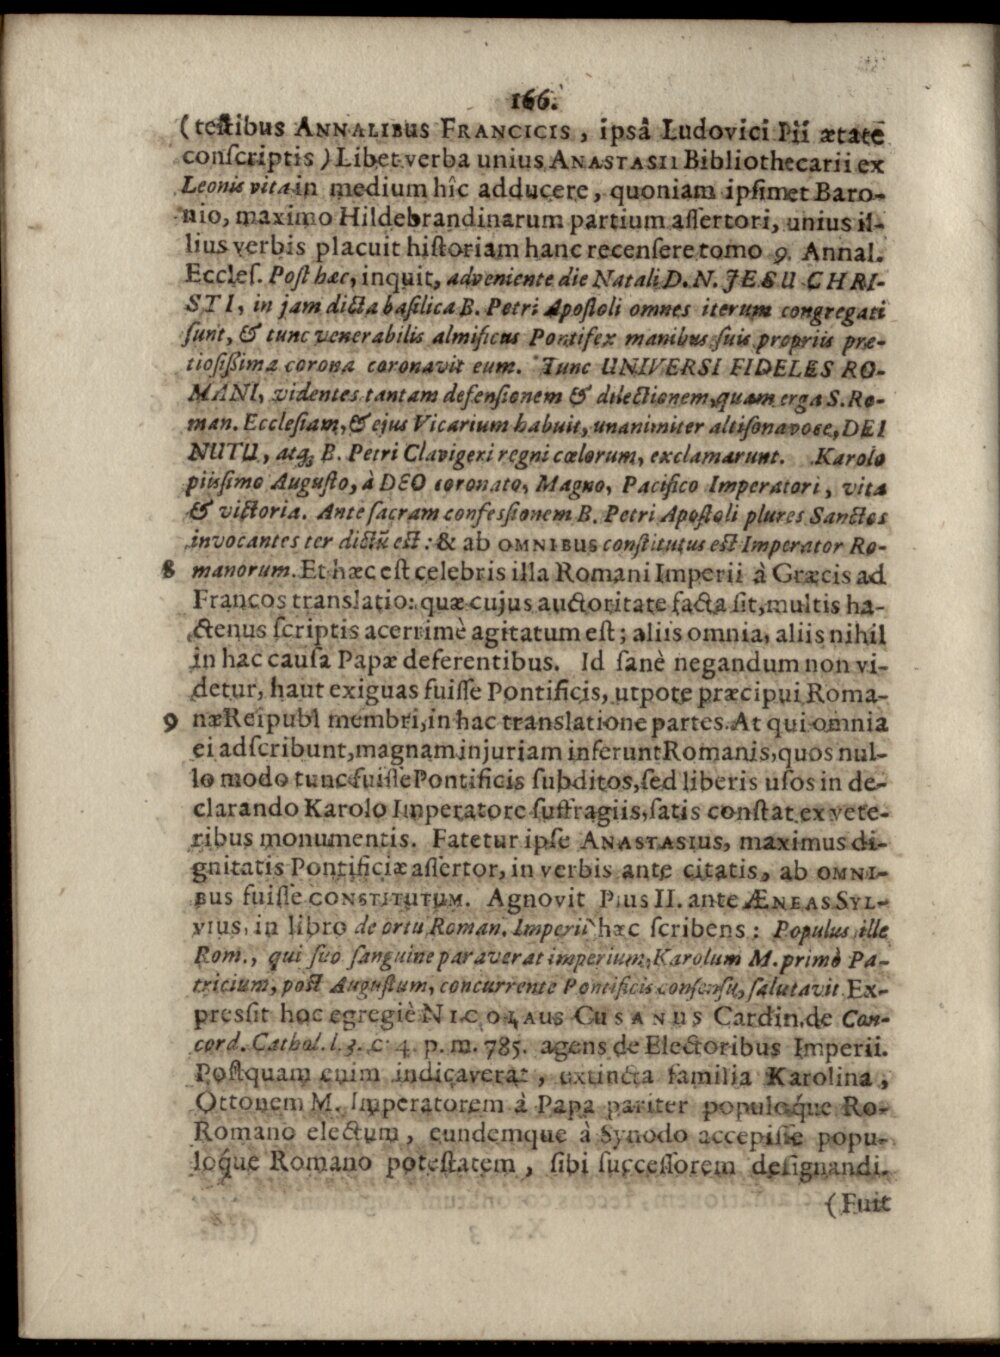 166.
(testibus ANNALIBUS FRANCICIS, ipsâ Ludovici Pii ætate
conscriptis) Libet verba unius ANASTASII Bibliothecarii ex
Leonis vita in medium hîc adducere, quoniam ipsimet Baro-
nio, maximo Hildebrandinarum partium assertori, unius il-
lius verbis placuit historiam hanc recensere tomo 9. Annal.
Eccles. Post hæc, inquit, adveniente die Natali D. N. JESU CHRI-
STI, in jam dicta basilica B. Petri Apostoli omnes iterum congregati
sunt, & tunc venerabilis almificus Pontifex manibus suis propriis præ-
tiosissima corona coronavit eum. Tunc UNIVERSI FIDELES RO-
MANI, videntes tantam defensionem & dilectionem, quam erga S. Ro-
man. Ecclesiam, & ejus Vicarium habuit, unanimiter altisona voce, DEI
NUTU, atq; B. Petri Clavigeri regni cœlorum, exclamarunt. Karolo
piissimo Augusto, à DEO coronato, Magno, Pacifico Imperatori, vita
& victoria. Ante sacram confessionem B. Petri Apostoli plures Sanctos
invocantes ter dictũ est: & ab OMNIBUS constitutus est Imperator Ro-
8 manorum. Et hæc est celebris illa Romani Imperii à Græcis ad
Francos translatio: quæ cujus auctoritate facta sit, multis ha-
ctenus scriptis acerrimè agitatum est; aliis omnia, aliis nihil
in hac causa Papæ deferentibus. Id sanè negandum non vi-
detur, haut exiguas fuisse Pontificis, utpote præcipui Roma-
9 næ Reipubl membri, in hac translatione partes. At qui omnia
ei adscribunt, magnam injuriam inferunt Romanis, quos nul-
lo modo tunc fuisse Pontificis subditos, sed liberis usos in de-
clarando Karolo Imperatore suffragiis, satis constat ex vete-
ribus monumentis. Fatetur ipse ANASTASIUS, maximus di-
gnitatis Pontificiæ assertor, in verbis ante citatis, ab OMNI-
BUS fuisse CONSTITUTUM. Agnovit Pius II. ante ÆNEAS SYL-
VIUS, in libro de ortu Roman. Imperii hæc scribens: Populus ille
Rom., qui suo sanguine paraverat imperium, Karolum M. primò Pa-
tricium, pòst Augustum, concurrente Pontificis consensu, salutavit. Ex-
pressit hoc egregiè NICOLAUS CUSANUS Cardin. de Con-
cord. Cathol. l. 3. c. 4. p. m. 785. agens de Electoribus Imperii.
Postquam enim indicaverat, extincta familia Karolina,
Ottonem M. Imperatorem à Papa pariter populoque Ro-
Romano electum, eundemque à Synodo accepisse popu-
loque Romano potestatem, sibi successorem designandi.
(Fuit